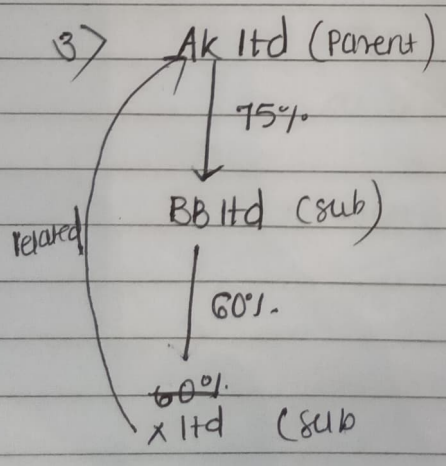 3) Ak ltd (Parent)
75%
BB ltd (sub)
related
60%.
60%.
x ltd (sub